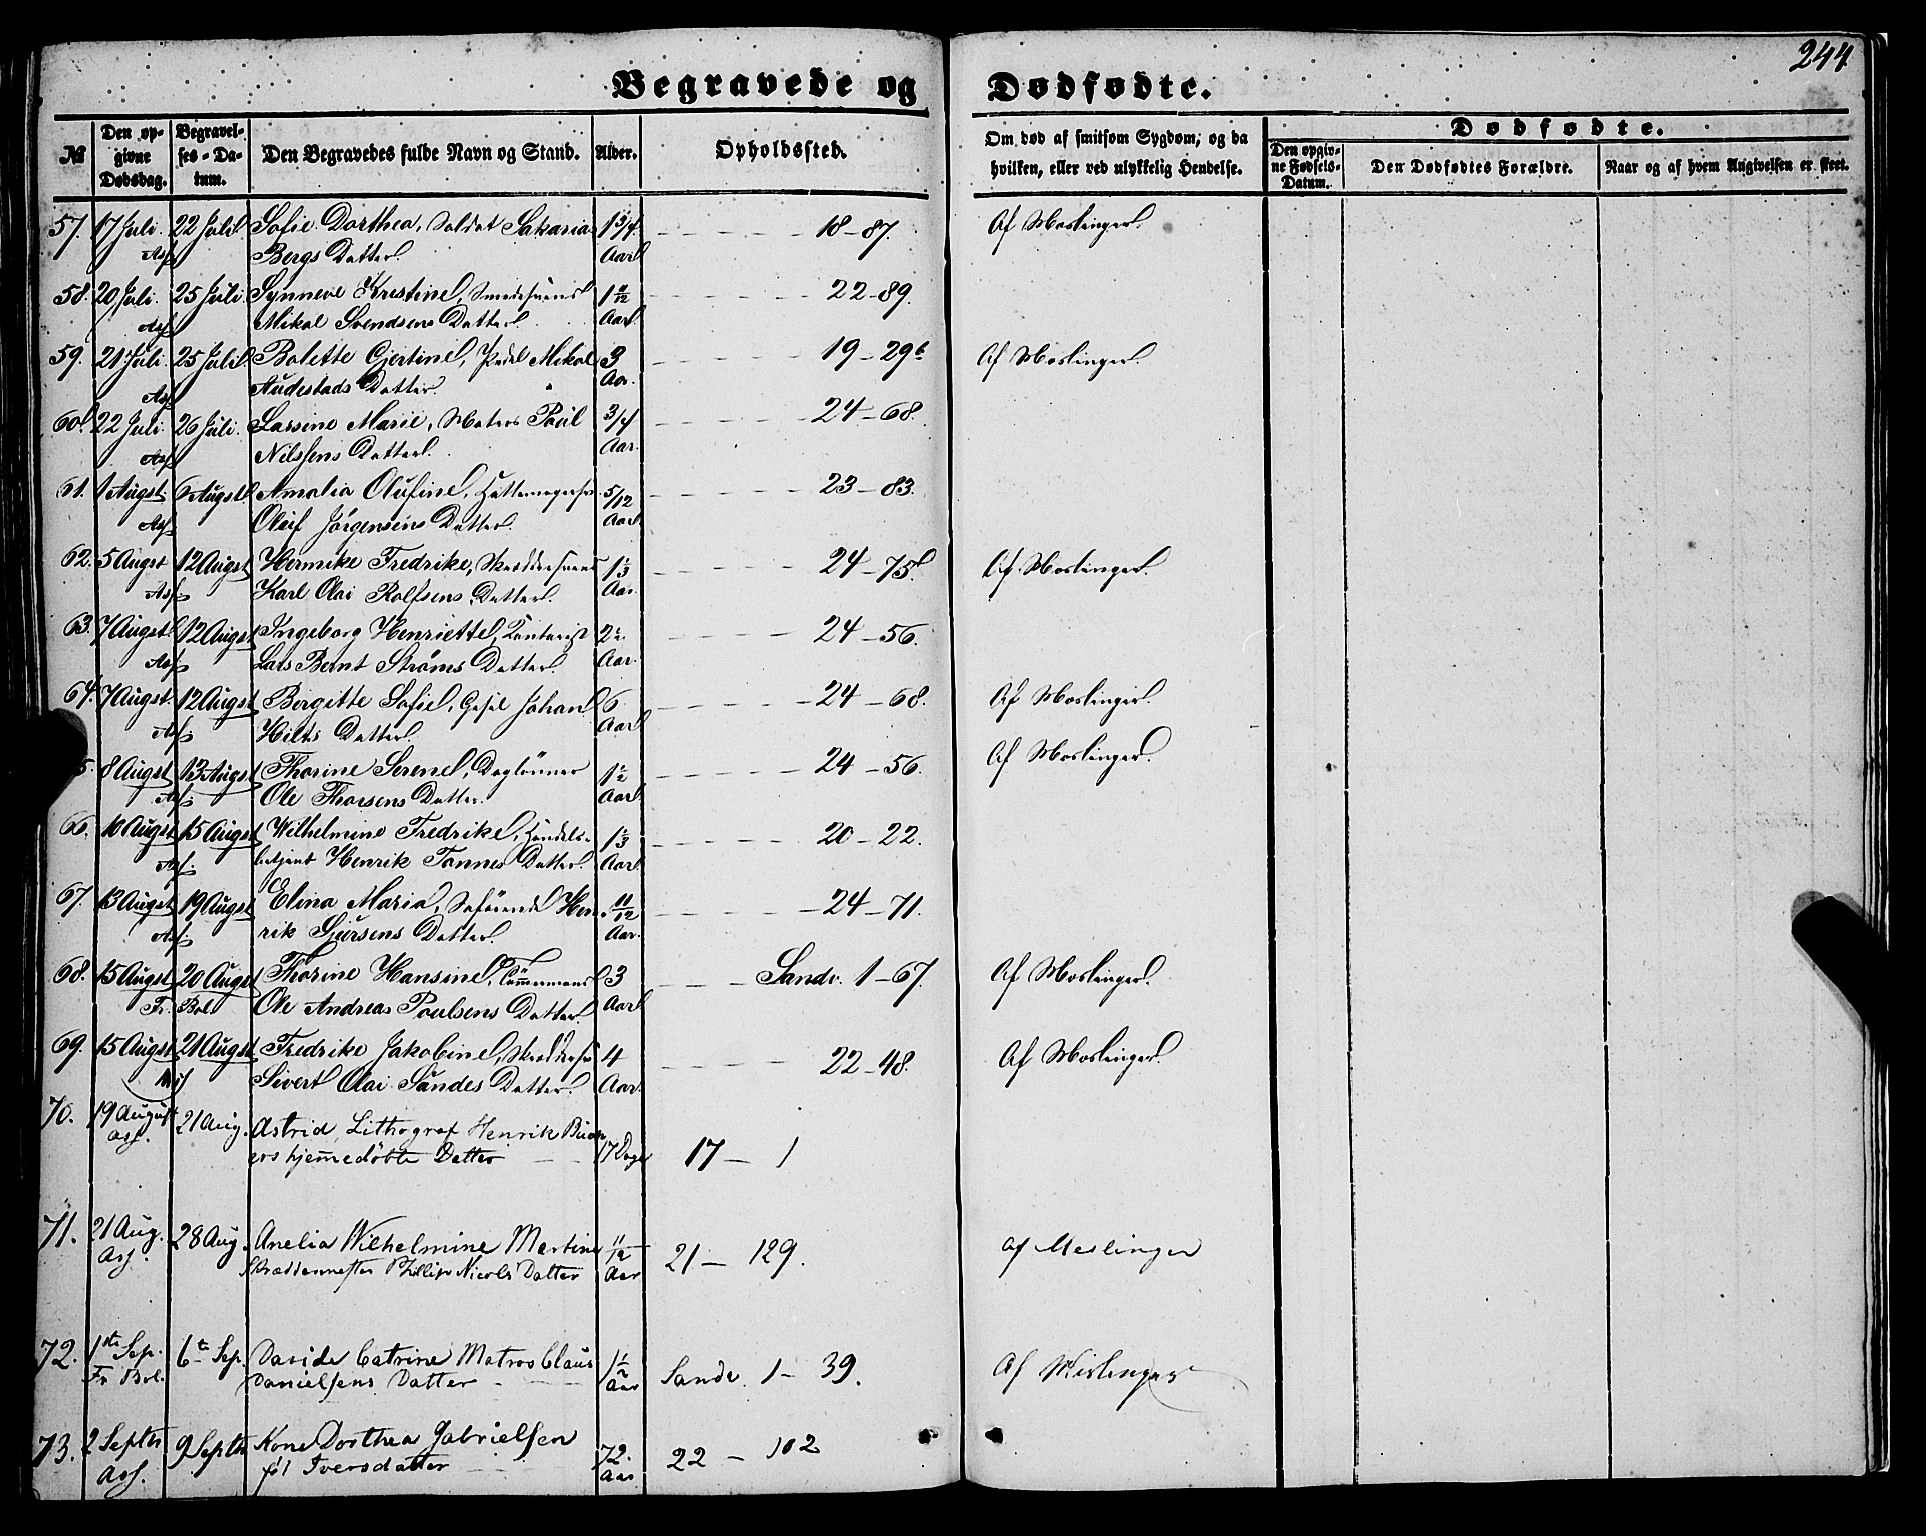 244
Begravede og Dødfødte.
№
Den opgivne Dødsdag.
Begravelses-Datum.
Den Begravedes fulde Navn og Stand.
Alder.
Opholdssted.
Om død af smitsom Sygdom, og da hvilken, eller ved ulykkelig Hendelse.
Dødfødte.
Den opgivne Fødsels-Datum.
Den Dødfødtes Forældre.
Naar og af hvem Angivelsen er skeet.
57. 17 Juli. 22 Juli. Sofie Dorthea, Soldat Sakarias 1 3/4 18-87. Af Meslinger.
Ass. Bergs Datter. Aar.
58. 20 Juli. 25 Juli. Synneve Kristine, Smedesvens 22-89.
Ass. Mikal Svendsens Datter. Aar.
59. 21 Juli. 25 Juli. Bolette Gjertine, Pedel Mikal 3 19-29b Af Meslinger.
Ass. Audestads Datter. Aar.
60. 22 Juli. 26 Juli. Larsine Marie, Matros Poul 3/4 24-68.
Ass. Nilssens Datter. Aar.
61. 1 Augst. 6 Augst. Amalia Olufine, 5/12 23-83.
Ass. Oluf Jørgensens Datter. Aar.
62. 5 Augst 12 Augst Hermike Fredrike, Skræddersvend 1 1/3 24-75. Af Meslinger.
Ass. Karl Olai Rolfsens Datter. Aar.
63. 7 Augst 12 Augst Ingeborg Henriette, Kontorist 2 24-56.
Ass. Lars Bernt Strøms Datter. Aar.
64. 7 Augst. 12 Augst Bergitte Sofie, Johan 6 24-68. Af Meslinger.
Ass. Hilts Datter. Aar.
5. 8 Augst 13 Augst Thorine Serene, Daglønner 1 1/2 24-56. Af Meslinger.
Ass. Ole Thorsens Datter. Aar.
66. 10 Augst 15 Augst Wilhelmine Fredrike, Handels- 1 1/3 20-22.
Ass. betjent Henrik Tonnes Datter. Aar.
67. 13 Augst 19 Augst Elina Maria, Søfarende Hen- 11/12 24-71.
Ass. rik Sjursens Datter. Aar.
68. 15 Augst 20 Augst Thorine Hansine, Tømmermand 3 Sandv. 1-67. Af Meslinger.
Fr. Bol. Ole Andreas Poulsens Datter. Aar.
69. 15 Augst 21 Augst Fredrike Jakobine, Skræddersv. 4 22-48. Af Meslinger.
Sivert Olai Sundes Datter. Aar.
70. 19 August 21 Aug. Astrid, Lithograf Henrik
ass. hjemmedøbte Datter 17 Dage 17-1
71. 21 Aug. 28 Aug. Anelia Wilhelmine Martine 11/12 21-129. af Meslinger
Ass. Phillip Nicols Datter Aar
72. 1ste Sep. 6te Sep. Davide Catrine Matros Claus 1 1/2 Sandv. 1-39. Af Meslinger
Fr Bol. Danielsens Datter Aar
73. 2 Septbr 9 Septbr Kone Dorthea Gabrielsen 72. 22-102
Ass. fød Iversdatter Aar